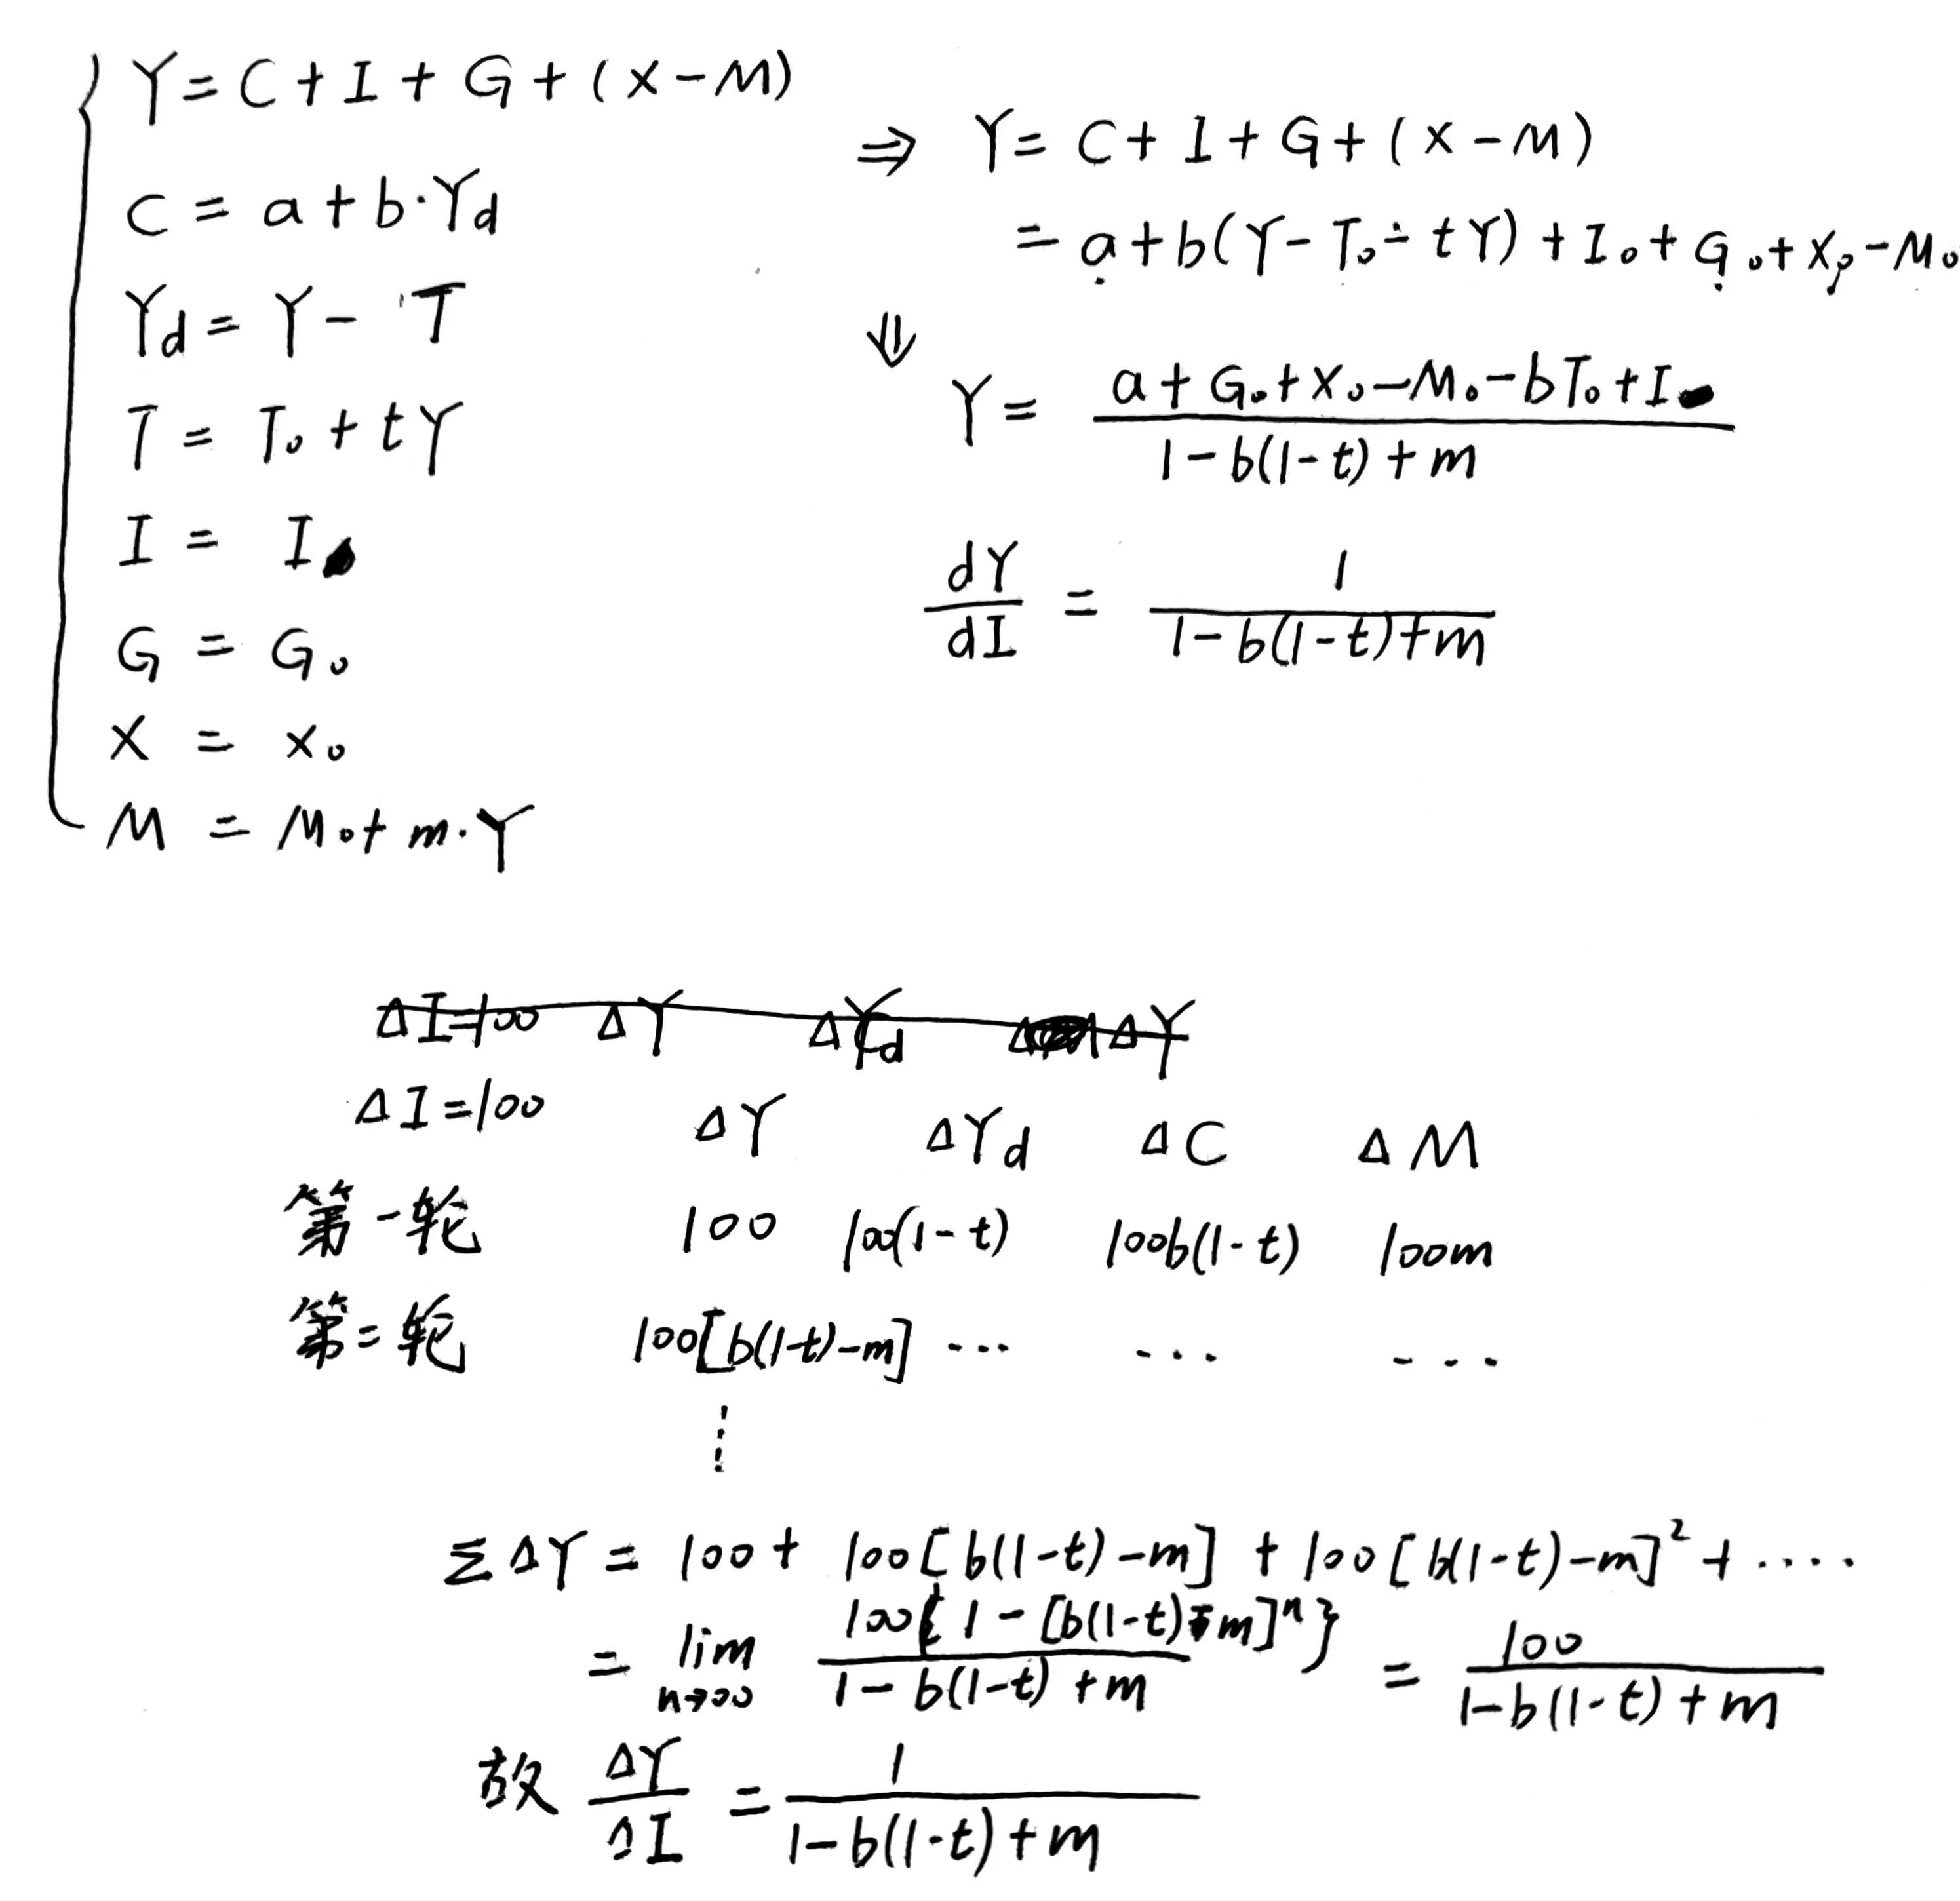 Y = C + I + G + (X - M)
C = a + b·Yd
Yd = Y - T
T = T₀ + tY
I = I
G = G₀
X = X₀
M = M₀ + m·Y
⇒ Y = C + I + G + (X - M)
= a + b(Y - T₀ - tY) + I₀ + G₀ + X₀ - M₀
⇓
Y = \frac{a + G₀ + X₀ - M₀ - bT₀ + I}{1 - b(1-t) + m}
\frac{dY}{dI} = \frac{1}{1 - b(1-t) + m}
ΔI=100 ΔY ΔYd ΔY
ΔI=100 ΔY ΔYd ΔC ΔM
第一轮 100 100(1-t) 100b(1-t) 100m
第二轮 100[b(1-t)-m] ... ... ...
⋮
ΣΔY = 100 + 100[b(1-t)-m] + 100[b(1-t)-m]² + ....
= \lim_{n→∞} \frac{100{1-[b(1-t)-m]ⁿ}}{1-b(1-t)+m} = \frac{100}{1-b(1-t)+m}
故 \frac{ΔY}{ΔI} = \frac{1}{1-b(1-t)+m}